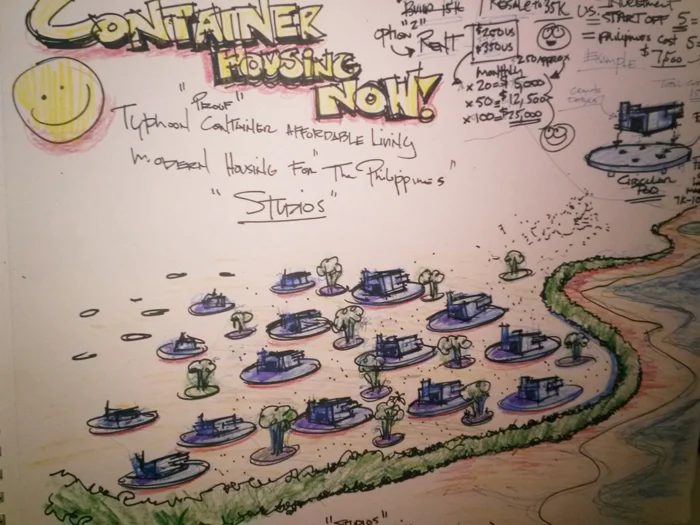 CONTAINER
HOUSING
NOW!
"PROOF"
Typhoon CONTAINER AFFORDABLE Living
MODERN HOUSING FOR "The Philippines"
"STUDIOS"
BUILD 15K
RESALE TO 35K
OPTION "2"
RENT
$250US
$350US
250 APPROX
MONTHLY
x 20 = $5,000
x 50 = $12,500
x 100 = $25,000
US
INVESTMENT
START OFF
= Philippines Cost
$7,500
EXAMPLE
CIRCULAR
POD
"STUDIOS"